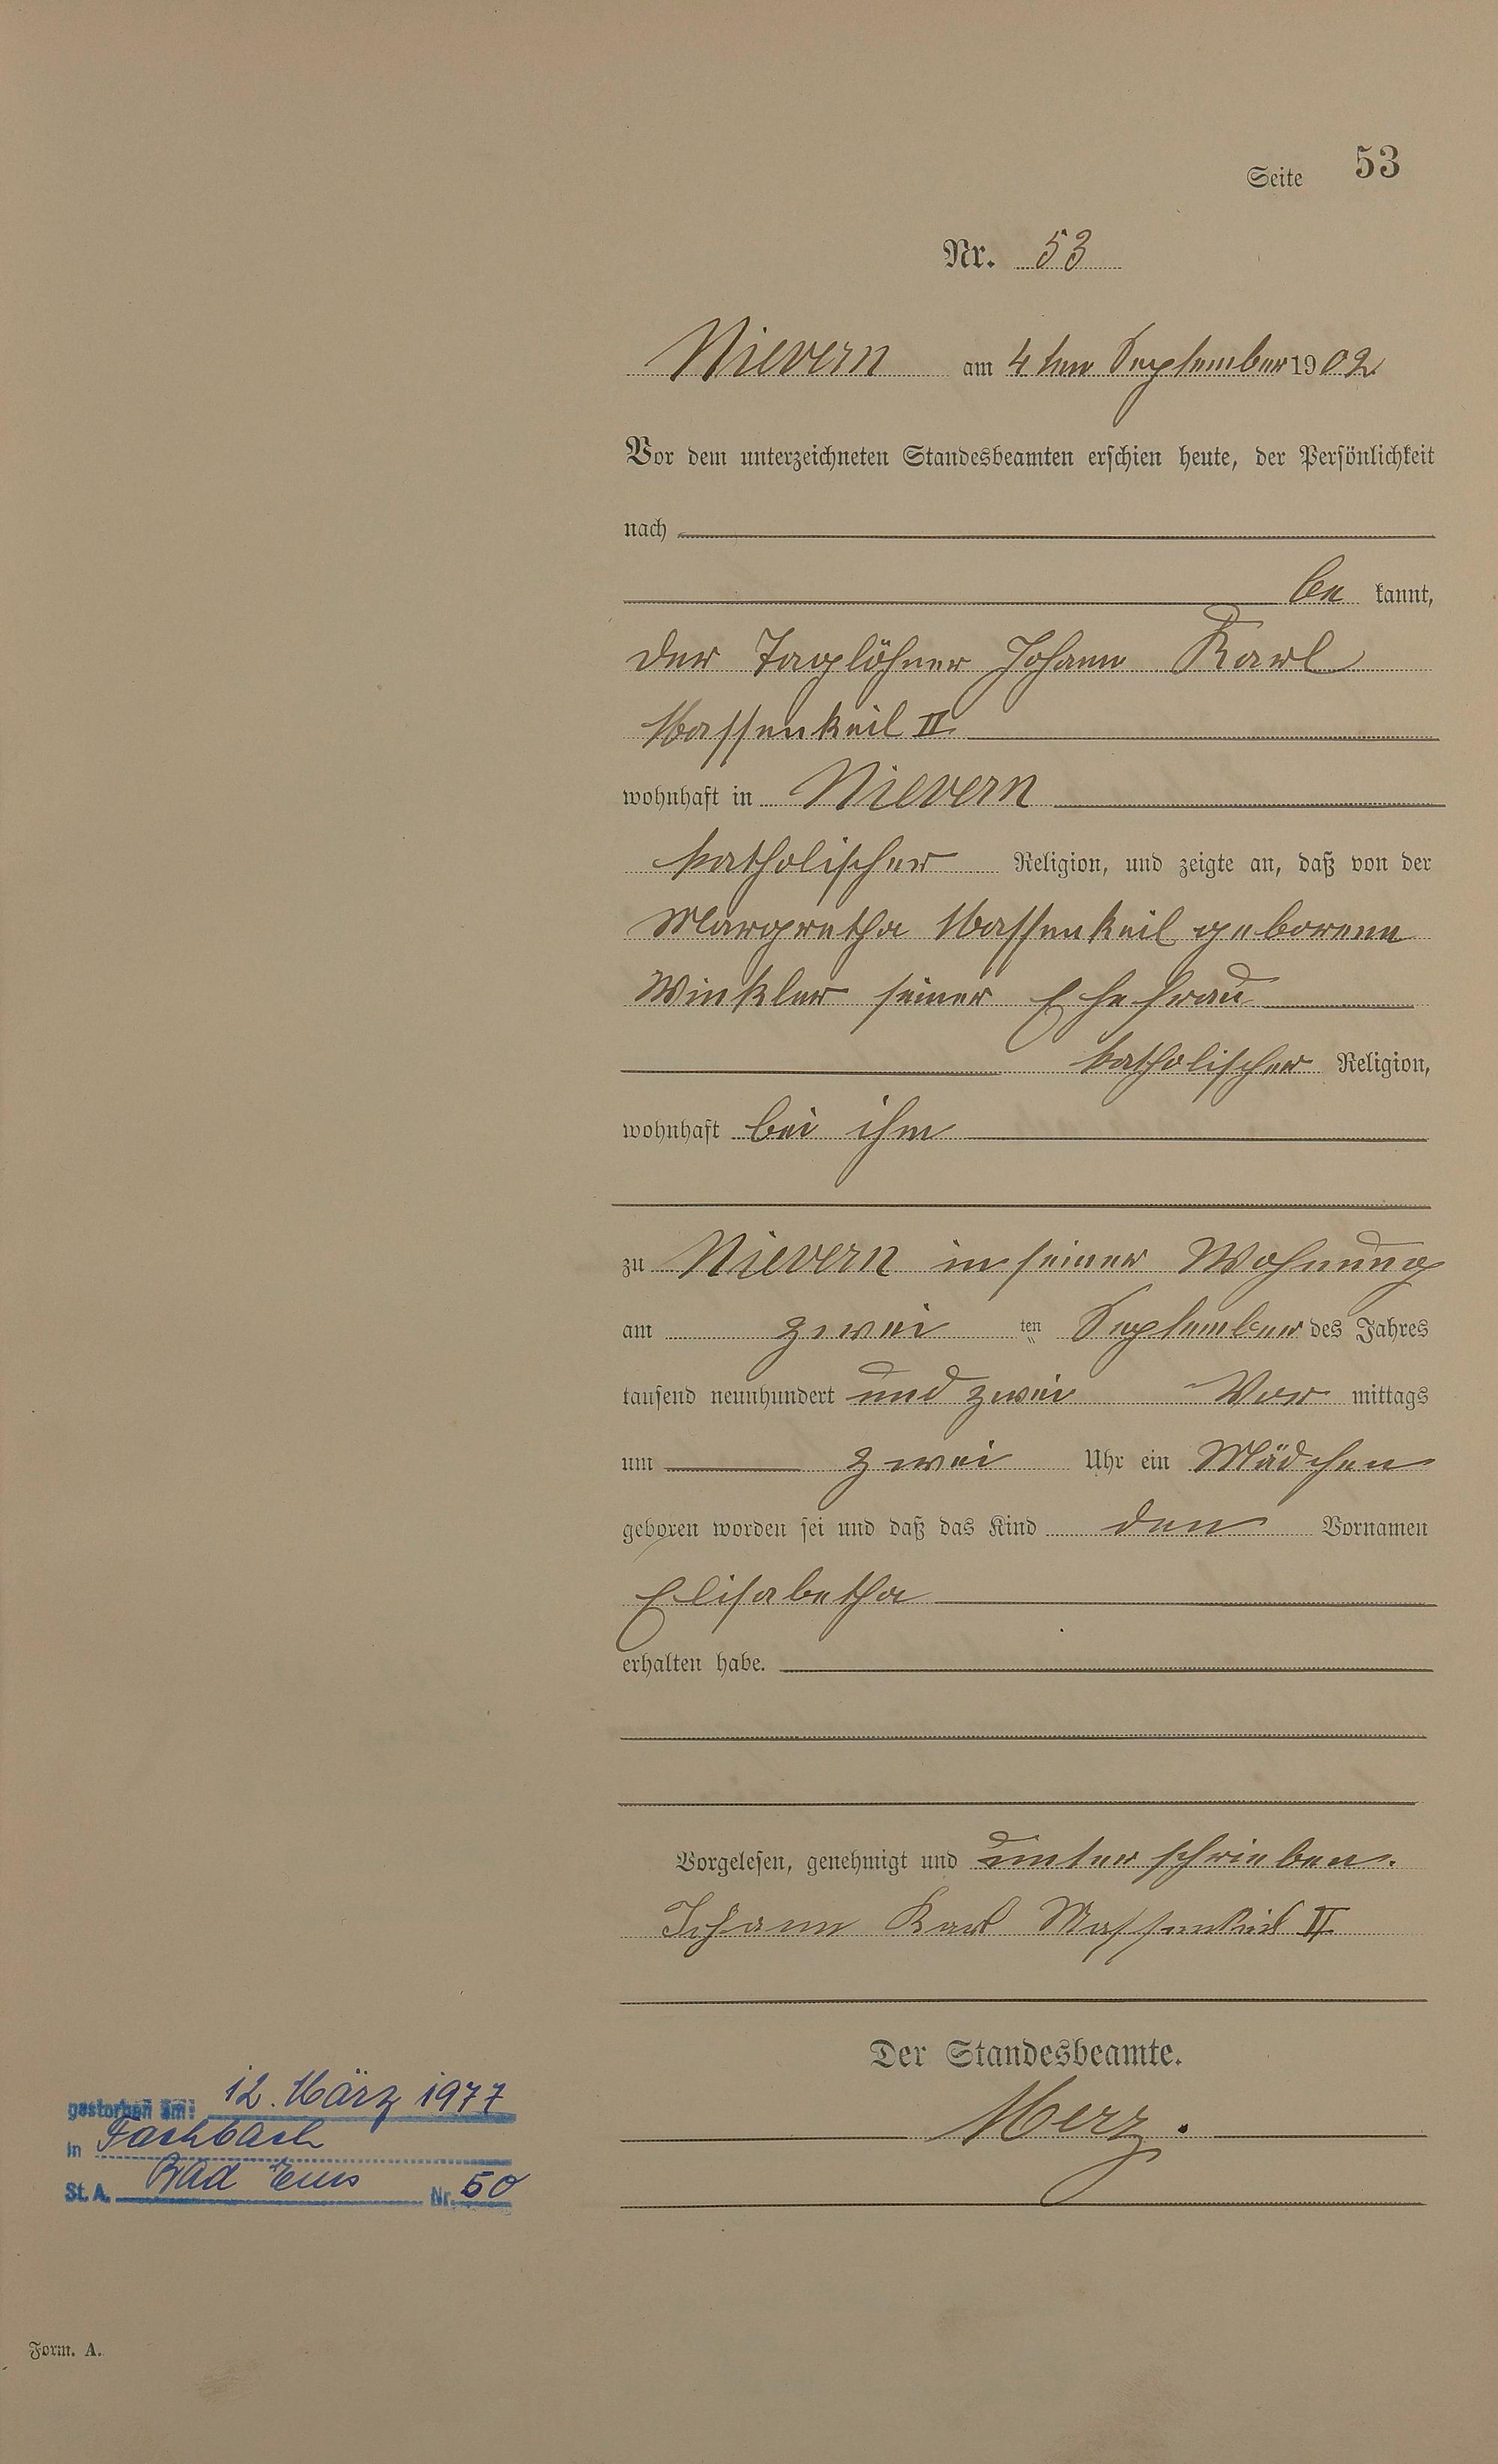 Seite 53
Nr. 53
Nievern am 4ten September 1902
Vor dem unterzeichneten Standesbeamten erschien heute, der Persönlichkeit
nach
be kannt,
der Taglöhner Johann Karl
Massenkeil II
wohnhaft in Nievern
katholischer Religion, und zeigte an, daß von der
Margretha Massenkeil geborene
Winkler seiner Ehefrau
katholischer Religion,
wohnhaft bei ihm
zu Nievern in seiner Wohnung
am zwei ten September des Jahres
tausend neunhundert und zwei Vor mittags
um zwei Uhr ein Mädchen
geboren worden sei und daß das Kind den Vornamen
Elisabetha
erhalten habe.
Vorgelesen, genehmigt und unterschrieben.
Johann Karl Massenkeil II
Der Standesbeamte.
Merz.
gestorben am: 12. März 1977
in Fachbach
St. A. Bad Ems Nr. 50
Form. A.